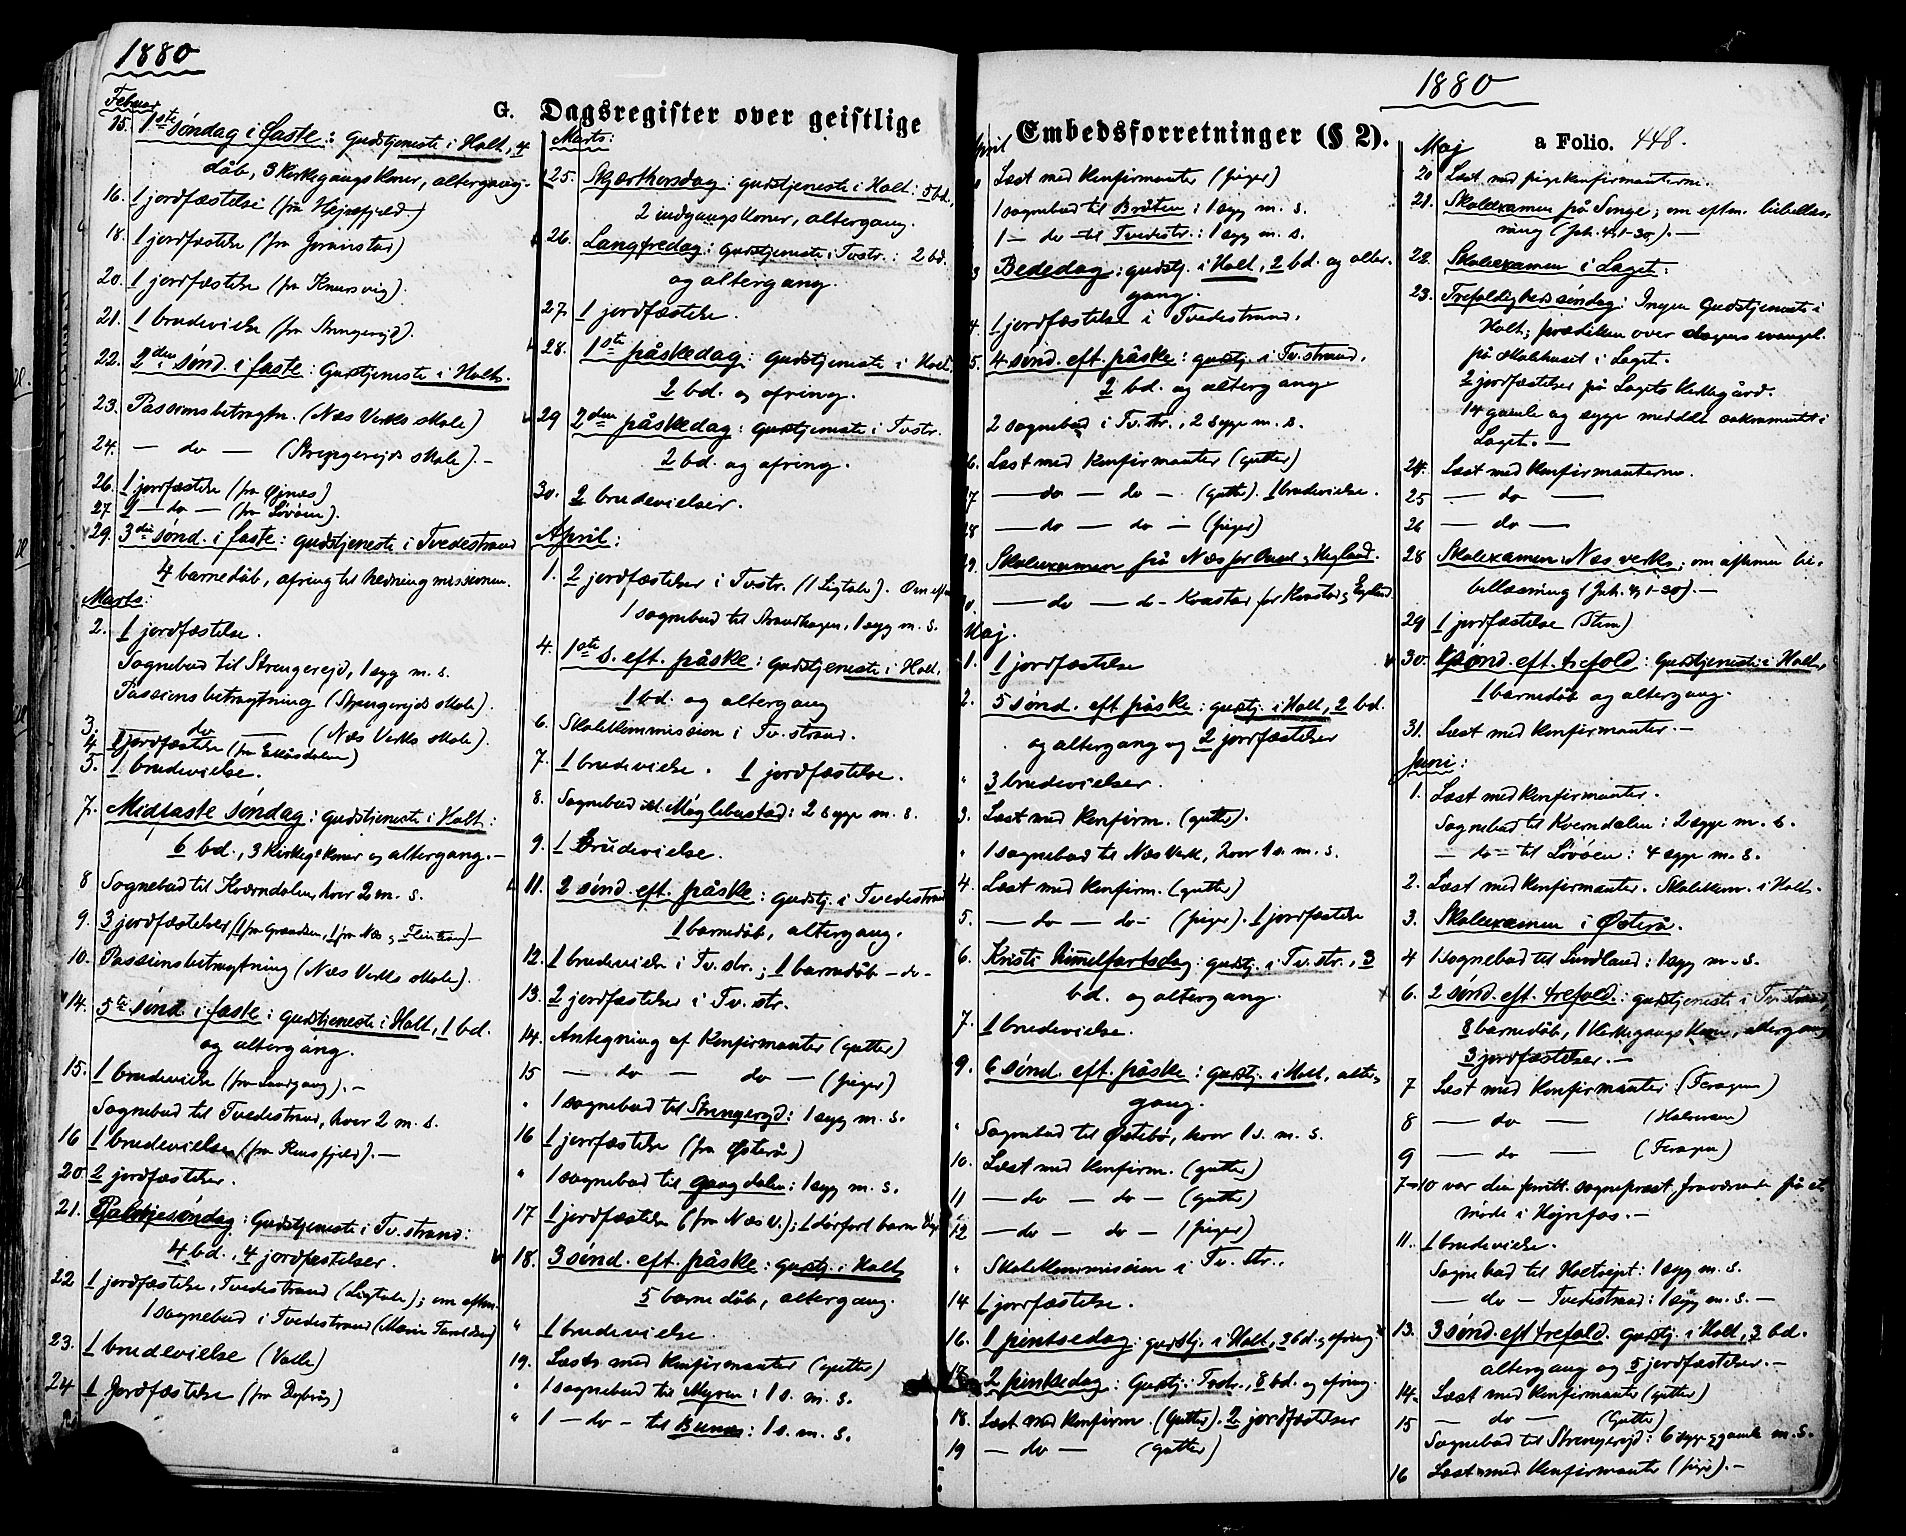 1880
G. Dagsregister over geistlige
Februar
15. 1ste søndag i faste: gudstjeneste i Holt, 4
dåb, 3 kirkegangskoner, altergang.
16. 1 jordfæstelse (fra Hejrefjeld.)
18. 1 jordfæstelse (fra Joranstad)
20. 1 jordfæstelse (fra Knursvig).
21. 1 brudevielse (fra Strengerejd).
22. 2den sønd. i faste: Gudstjeneste i Holt.
23. Passionsbetragtn. (Næs Verks skole)
24. — do — (Strengerejds skole). –
26. 1 jordfæstelse (fra Øjnæs)
27. 1 — do — (fra Løvåsen).
29. 3die sønd. i faste: gudstjeneste i Tvedestrand
4 barnedåb, ofring til hedningmissionen.
Marts:
2. 1 jordfæstelse.
Sognebud til Strengerejd, 1 syg m. s.
Passionsbetragtning (Strengerejds skole).
3. — do — (Næs Verks skole).
4. 1 jordfæstelse (fra
5. 1 brudevielse.
7. Midfaste søndag: gudstjeneste i Holt:
6 bd., 3 kirkeg.koner og altergang. –
8 Sognebud til Kværndalen, hvor 2 m. s.
9. 3 jordfæstelser, (1 fra 1 fra Næs,
10. Passionsbetragtning (Næs Verks skole).
14. 5te sønd. i faste: gudstjeneste i Holt, 1 bd.
og altergang.
15. 1 brudevielse (fra Landgang). –
Sognebud til Tvedestrand, hvor 2 m. s.
16 1 brudevielse (fra Rensfjeld). –
20. 2 jordfæstelser.
21. Palmesøndag: Gudstjeneste i Tv.strand:
4 bd., 4 jordfæstelser.
22 1 jordfæstelse i Tvedestrand (Ligtale); om eftm.
1 sognebud i Tvedestrand (Marie
23. 1 brudevielse (Valle)
24 1 Jordfæstelse (fra
Marts:
25. Skjærthorsdag: gudstjeneste i Holt: 5 bd.,
2 indgangskoner, altergang.
26. Langfredag: gudstjeneste i Tvstr.: 2 bd.
og altergang.
27. 1 jordfæstelse.
28. 1ste påskedag: gudstjeneste i Holt
2 bd. og ofring.
29 2den påskedag: gudstjeneste i Tvstr.
2 bd. og ofring.
30. 2 brudevielser.
April:
1. 2 jordfæstelser i Tvstr. (1 Ligtale). Om eftm
1 sognebud til Strandhagen, 1 syg m. s.
4. 1ste s. eft. påske: gudstjeneste i Holt.
1 bd. og altergang
6. Skolekommission i Tv.strand.
7. 1 brudevielse. 1 jordfæstelse.
8. Sognebud til Møglebustad: 2 syge m. s.
9. 1 Brudevielse.
11. 2 sønd. eft. påske: gudstj. i Tvedestrand
1 barnedåb, altergang.
12. 1 brudevielse i Tv.str.; 1 barnedåb – do –
13. 2 jordfæstelser i Tv.str.
14. Antegning af konfirmanter (gutter)
15 — do — do — (piger)
" 1 sognebud til Strengerejd: 1 syg m. s.
16 1 jordfæstelse (fra Østerå)
" 1 sognebud til Gangdalen: 1 syg m. s.
17 1 jordfæstelse (fra Næs V.); 1 dødfødt barn
18. 3 sønd. eft. påske: gudstj. i Holt
5 barnedåb, altergang.
" 1 brudevielse
19. Læst med konfirmanter (gutter)
" 1 sognebud til Myren: 1 s. m. s.
" 1 — do – til Bunæs: 1 s. m. s.
1880
Embedsforretninger (§ 2).
a Folio. 448.
April
Læst med konfirmanter (piger)
1 sognebud til Bråten: 1 syg m. s.
1 — do – til Tvedestr.: 1 syg m. s.
Bededag: gudstj. i Holt, 2 bd. og alter-
gang.
4. 1 jordfæstelse i Tvedestrand.
5. 4 sønd. eft. påske: gudstj. i Tv.strand.
2 bd. og altergang
2 sognebud i Tv.str., 2 syge m. s.
6. Læst med konfirmanter (gutter)
27 — do — do — (gutter). 1 brudevielse.
28 — do — do — (piger)
29. Skolexamen på Næs for
30. — do — do –
Maj.
1. 1 jordfæstelse
2. 5 sønd. eft. påske: gudstj. i Holt, 2 bd.
og altergang og 2 jordfæstelser
" 3 brudevielser.
3. Læst med konfirm. (gutter).
" 1 sognebud til Næs Verk, hvor 1 s. m. s.
4. Læst med konfirm. (gutter)
5. — do — do – (piger). 1 jordfæstelse
6. Kristi himmelfartsdag: gudstj. i Tv.str., 3
bd. og altergang.
7. 1 brudevielse.
9. 6 sønd. eft. påske: gudstj. i Holt, alter-
gang.
" Sognebud til Østebø, hvor 1 s. m. s.
10. Læst med konfirm. (gutter)
11 — do — do — (gutter)
12 — do — do — (piger)
" Skolekommission i Tv. str..
14 1 jordfæstelse.
16. 1 pintsedag: gudstj. i Holt, 2 bd. og ofring
17. 2 pintsedag: Gudstj. i Tvstr., 8 bd. og ofring.
18. Læst med konfirm. (gutter). 2 jordfæstelser
19 — do — (gutter)
Maj
20 Læst med pigekonfirmanterne.
21. Skolexamen på Songe; om eftm. bibellæs-
ning (Joh. 4, 1–30.). –
22. Skolexamen i Laget.
23. Trefoldighedssøndag: Ingen Gudstjeneste i
Holt; prædiken over dagens evangel.
på skolehuset i Laget.
2 jordfæstelser på Lagets kirkegård.
14 gamle og syge meddelt sakramentet i
Laget. –
24. Læst med konfirmanterne.
25 — do —
26 — do —
28 Skolexamen i Næs verks; om aftenen bi-
bellæsning (Joh. 4, 1–30). –
29 1 jordfæstelse (Stem)
30. 1 sønd. eft. trefold: Gudstjeneste i Holt
1 barnedåb og altergang.
31. Læst med konfirmanter. –
Juni:
1. Læst med konfirmanter.
Sognebud til Kverndalen: 2 syge m. s.
— do – til Løvåsen: 4 syge m. s.
2. Læst med konfirmanter. Skolekom. i Holt.
3. Skolexamen i Østerå.
4 1 sognebud til Lundland: 1 syg m. s.
6. 2 sønd. eft. trefold.: gudstjeneste i Tv.strand,
8 barnedåb, 1 kirkegangskone, altergang
3 jordfæstelser. –
7 Læst med konfirmanter
8 — do —
9 — do —
7–10 var den forrett. sognepræst fraværende på et
møde i
11. 1 brudevielse.
Sognebud til Holtsejet: 1 syg m. s.
— do — Tvedestrand: 1 syg m. s. –
13. 3 sønd. eft trefold. gudstj. i Holt, 3 bd.
altergang og 5 jordfæstelser. –
14. Læst med konfirmanter (gutter)
15 — do — (Gutter)
Sognebud til Strengerejd: 6 syge og gamle m. s.
16 Læst med konfirmanter (piger). –